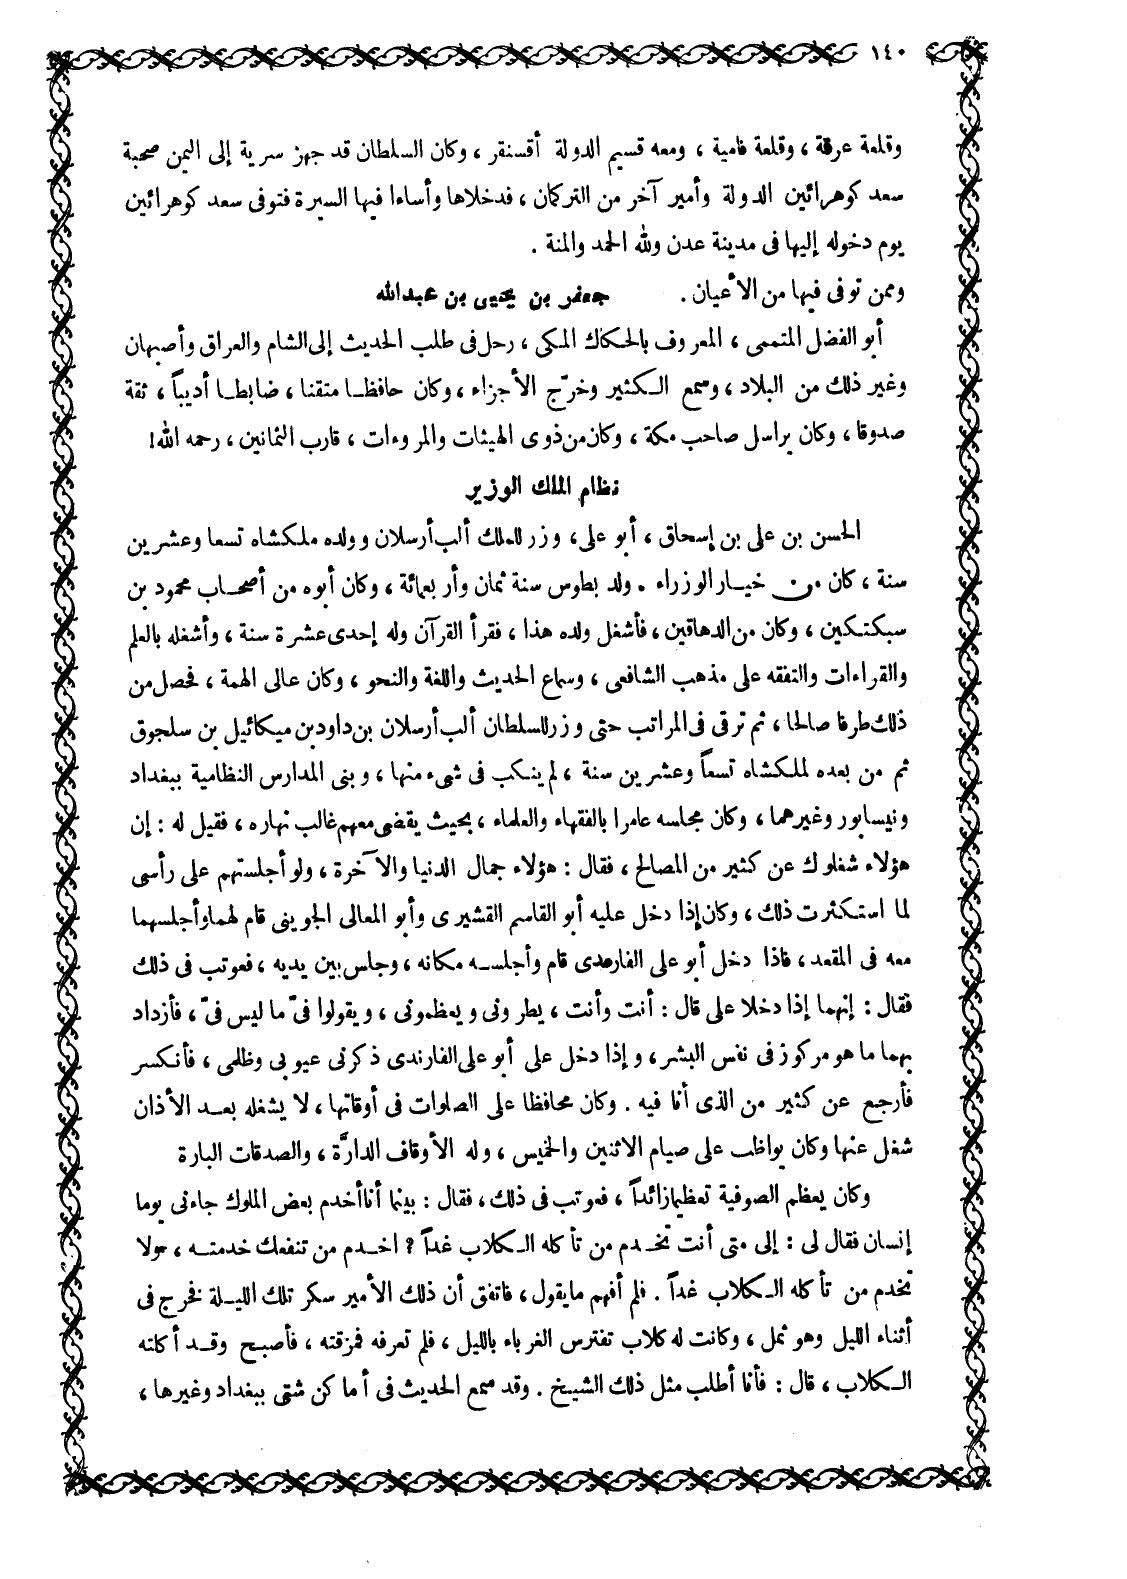 ١٤٠
وقلعة عرقة ، وقلعة فامية ، ومعه قسيم الدولة أقسنقر ، وكان السلطان قد جهز سرية إلى اليمن صحبة
سعد كوهرائين الدولة وأمير آخر من التركمان ، فدخلاها وأساءا فيها السيرة فتوفى سعد كوهرائين
يوم دخوله إليها فى مدينة عدن ولله الحمد والمنة .
وممن توفى فيها من الأعيان . جعفر بن يحيى بن عبدالله
أبو الفضل المتممى ، المعروف بالحكاك المكى ، رحل فى طلب الحديث إلى الشام والعراق وأصبهان
وغير ذلك من البلاد ، وسمع الكثير وخرّج الأجزاء ، وكان حافظا متقنا ، ضابطا أديباً ، ثقة
صدوقا ، وكان يراسل صاحب مكة ، وكان من ذوى الهيئات والمروءات ، قارب الثمانين ، رحمه الله !
نظام الملك الوزير
الحسن بن على بن إسحاق ، أبو على ، وزر للملك ألب أرسلان وولده ملكشاه تسعا وعشرين
سنة ، كان من خيار الوزراء . ولد بطوس سنة ثمان وأربعمائة ، وكان أبوه من أصحاب محمود بن
سبكتكين ، وكان من الدهاقين ، فأشغل ولده هذا ، فقرأ القرآن وله إحدى عشرة سنة ، وأشغله بالعلم
والقراءات والتفقه على مذهب الشافعى ، وسماع الحديث واللغة والنحو ، وكان عالى الهمة ، فحصل من
ذلك طرفا صالحا ، ثم ترقى فى المراتب حتى وزر للسلطان ألب أرسلان بن داود بن ميكائيل بن سلجوق
ثم من بعده لملكشاه تسعاً وعشرين سنة ، لم ينكب فى شىء منها ، وبنى المدارس النظامية ببغداد
ونيسابور وغيرهما ، وكان مجلسه عامرا بالفقهاء والعلماء ، بحيث يقضى معهم غالب نهاره ، فقيل له : إن
هؤلاء شغلوك عن كثير من المصالح ، فقال : هؤلاء جمال الدنيا والآخرة ، ولو أجلستهم على رأسى
لما استكثرت ذلك ، وكان إذا دخل عليه أبو القاسم القشيرى وأبو المعالى الجوينى قام لهما وأجلسهما
معه فى المقعد ، فاذا دخل أبو على الفارمدى قام وأجلسه مكانه ، وجلس بين يديه ، فعوتب فى ذلك
فقال : إنهما إذا دخلا على قال : أنت وأنت ، يطرونى ويعظمونى ، ويقولوا فىّ ما ليس فىّ ، فأزداد
بهما ما هو مركوز فى نفس البشر ، وإذا دخل على أبو على الفارندى ذكرنى عيوبى وظلمى ، فأنكسر
فأرجع عن كثير من الذى أنا فيه . وكان محافظا على الصلوات فى أوقاتها ، لا يشغله بعد الأذان
شغل عنها وكان يواظب على صيام الاثنين والخميس ، وله الأوقاف الدارَّة ، والصدقات البارة
وكان يعظم الصوفية تعظيما زائداً ، فعوتب فى ذلك ، فقال : بينما أنا أخدم بعض الملوك جاءنى يوما
إنسان فقال لى : إلى متى أنت تخدم من تأكله الكلاب غداً ؟ اخدم من تنفعك خدمته ، ولا
تخدم من تأكله الكلاب غداً . فلم أفهم ما يقول ، فاتفق أن ذلك الأمير سكر تلك الليلة فخرج فى
أثناء الليل وهو ثمل ، وكانت له كلاب تفترس الغرباء بالليل ، فلم تعرفه فمزقته ، فأصبح وقد أكلته
الكلاب ، قال : فأنا أطلب مثل ذلك الشيخ . وقد سمع الحديث فى أماكن شتى ببغداد وغيرها ،